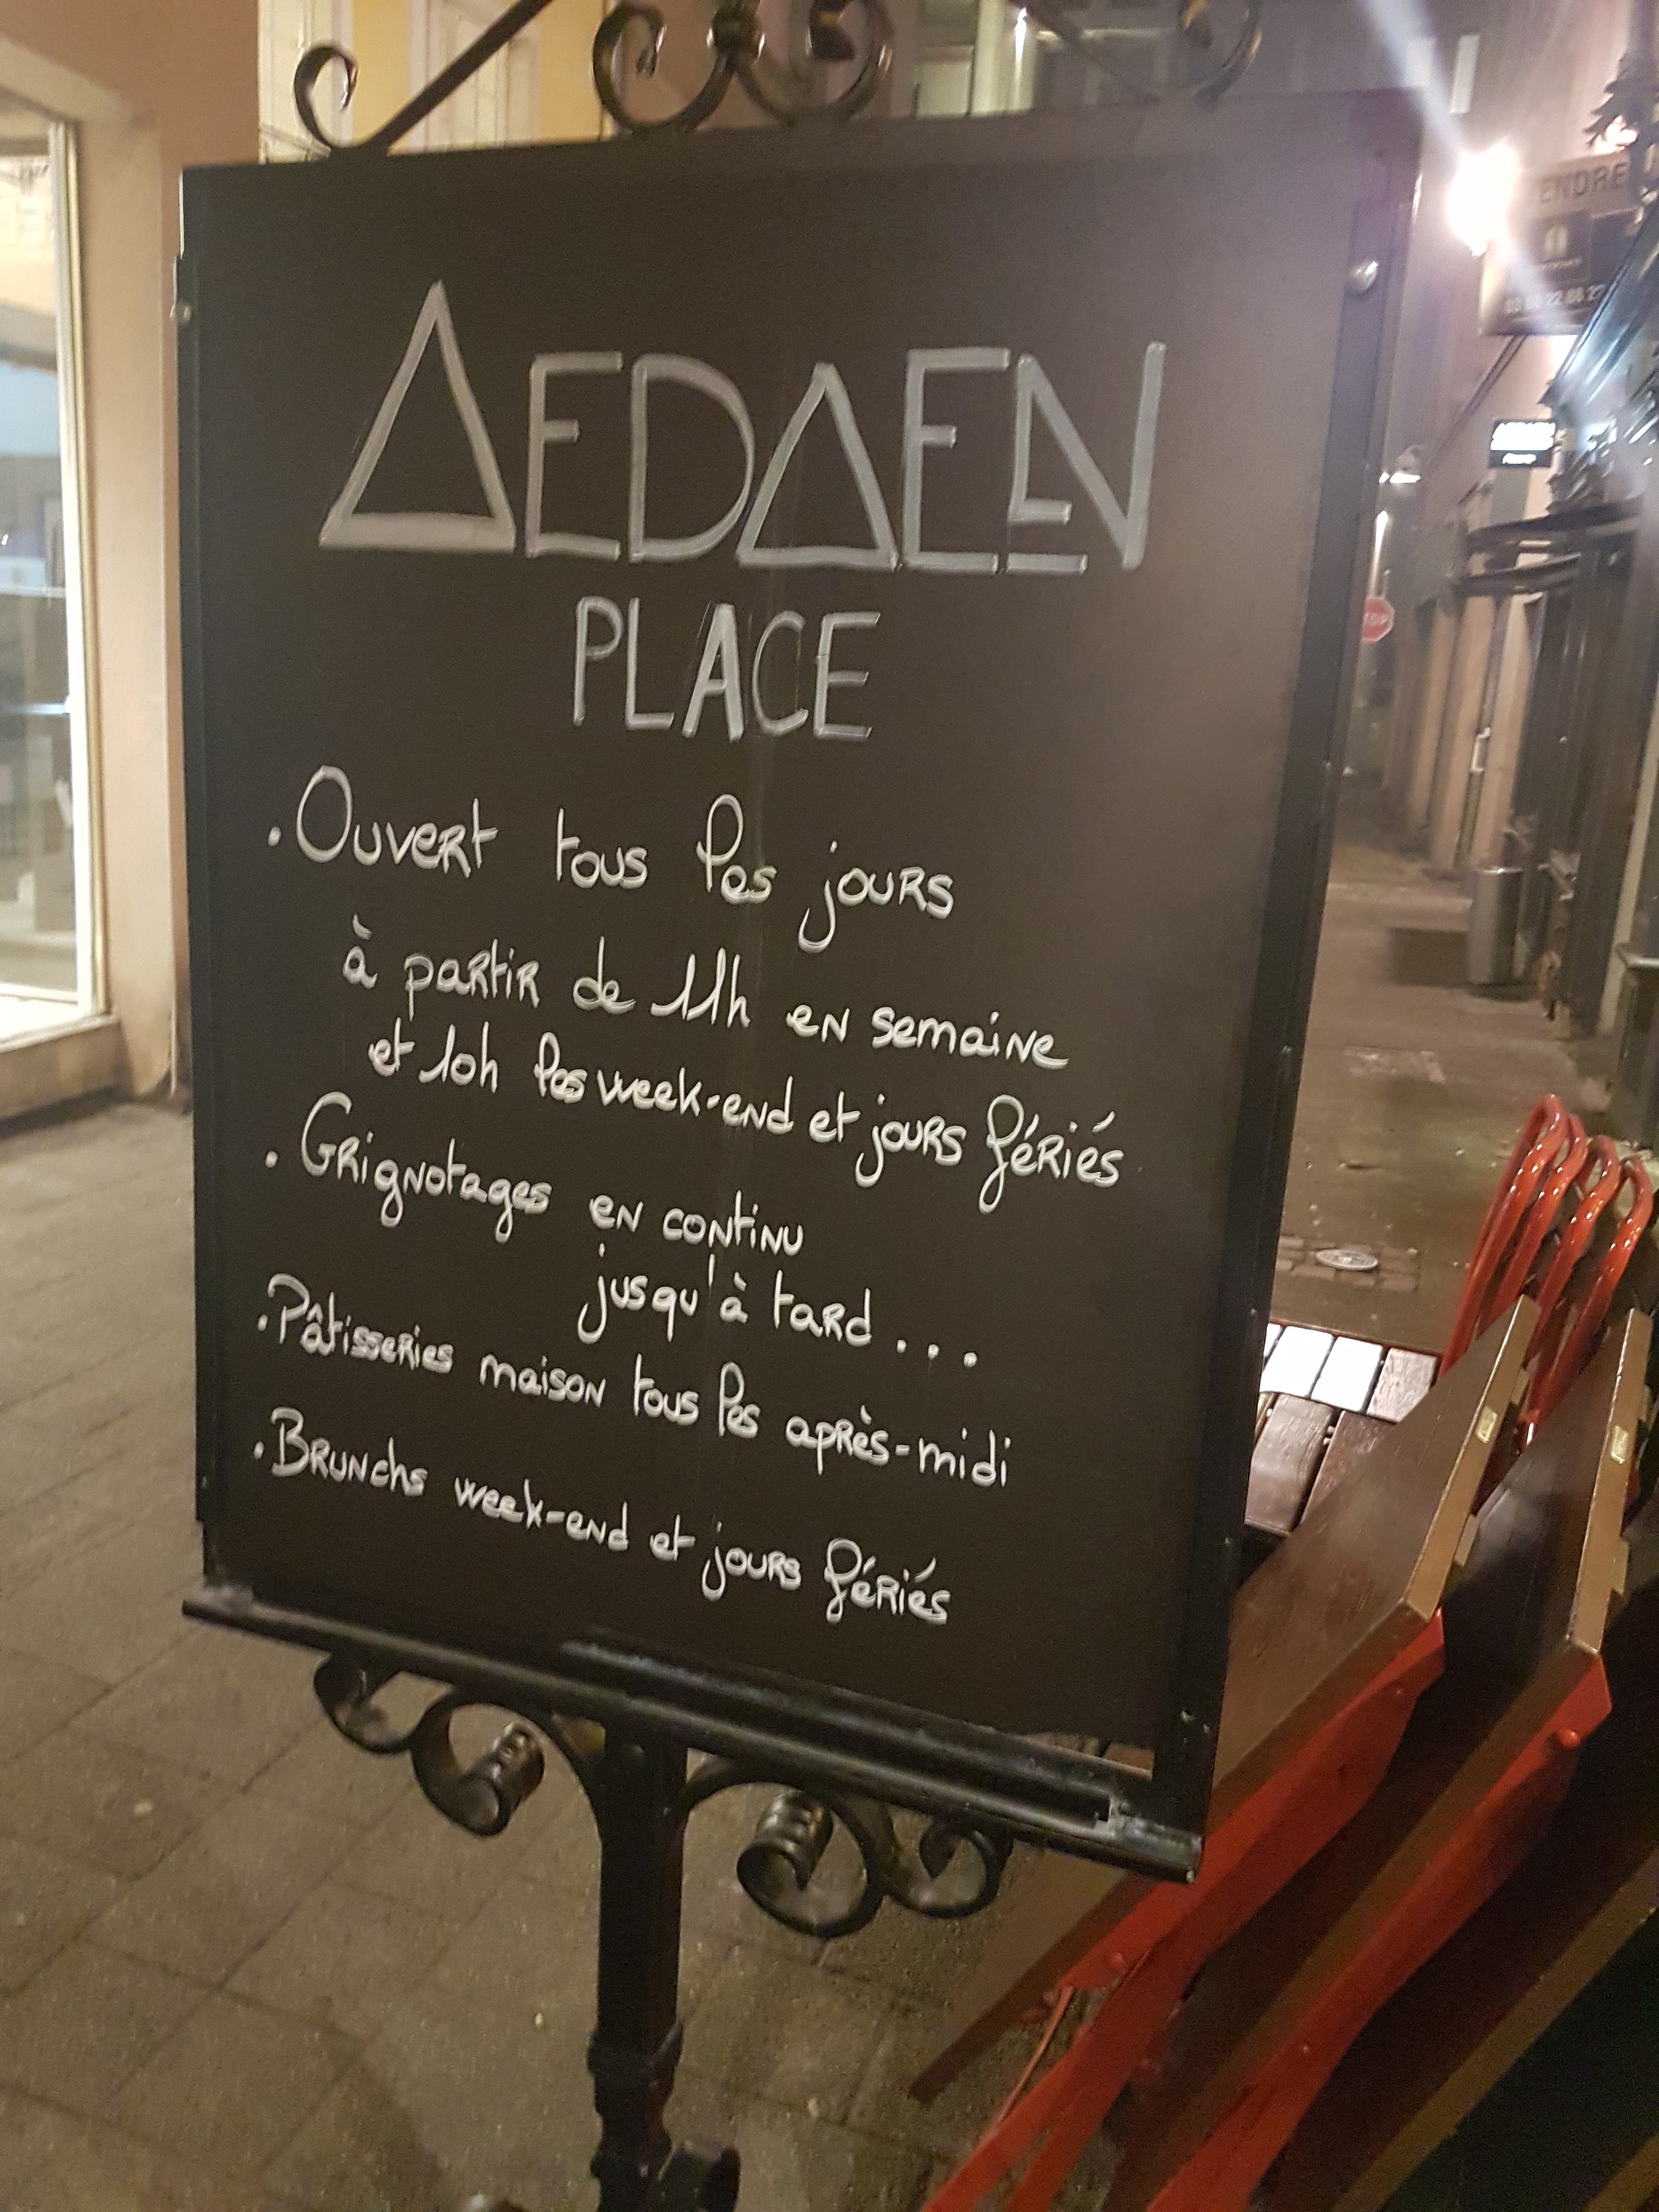 AEDAEN
PLACE
. Ouvert tous les jours
à partir de 11h en semaine
et 10h les week-end et jours fériés
. Grignotages en continu
jusqu'à tard ...
. Pâtisseries maison tous les après-midi
. Brunchs week-end et jours fériés
ENDRE
STOP